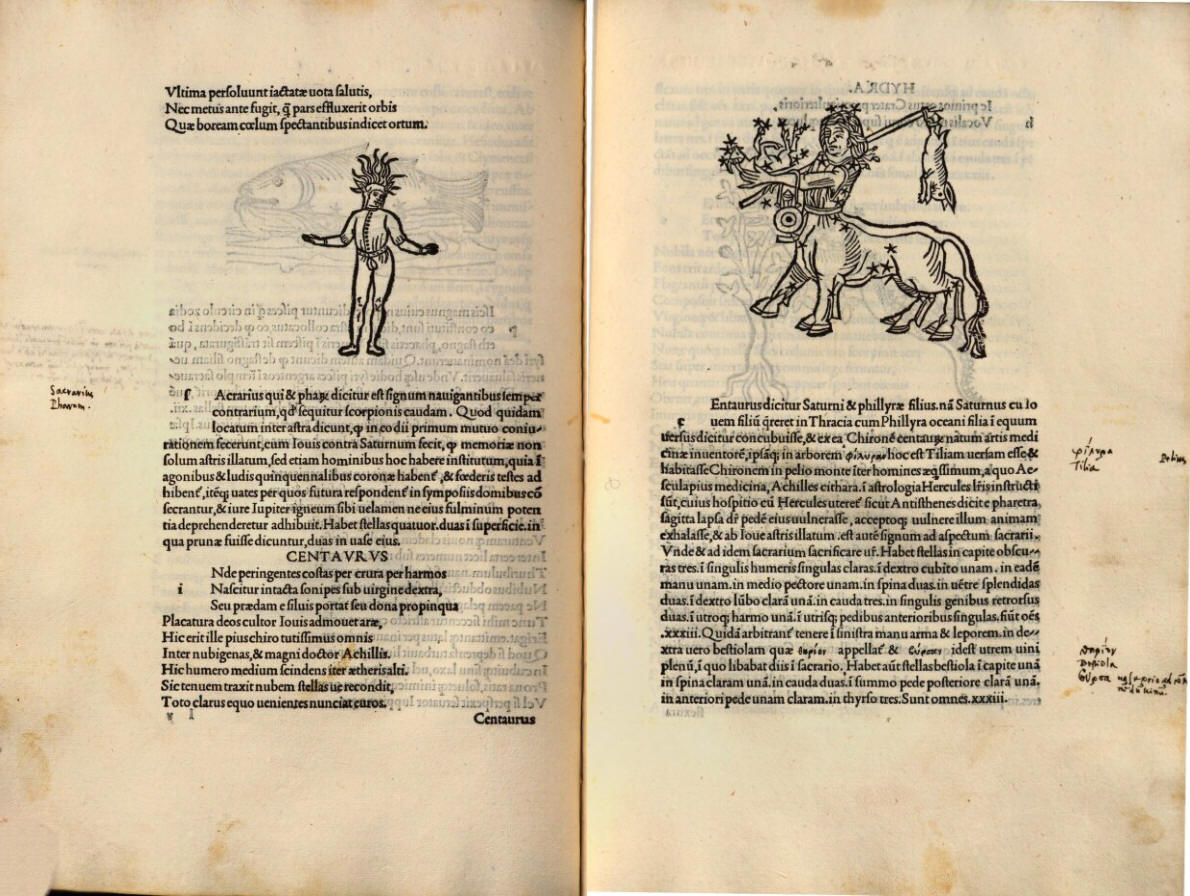 Vltima persoluunt iactatæ uota salutis,
Nec metus ante fugit, q̃ pars effluxerit orbis
Quæ boream cœlum spectantibus indicet ortum.
Sacrarius
Pharum.
ſ Acrarius qui & phaꝝ dicitur est signum nauigantibus semper
contrarium, qd̕ sequitur scorpionis caudam. Quod quidam
locatum inter astra dicunt, ꝙ in eo dii primum mutuo coniu-
rationem fecerunt, cum Iouis contra Saturnum fecit, ꝙ memoriæ non
solum astris illatum, sed etiam hominibus hoc habere institutum, quia ĩ
agonibus & ludis quinquennalibus coronæ habent̃, & fœderis testes ad
hibent̃, itẽq; uates per quos futura respondent̃ in symposiis domibus cõ
secrantur, & iure Iupiter igneum sibi uelamen ne eius fulminum poten
tia deprehenderetur adhibuit. Habet stellas quatuor. duas ĩ superficie. in
qua prunæ fuisse dicuntur, duas in uase eius.
CENTAVRVS
Nde peringentes costas per crura per harmos
i Nascitur intacta sonipes sub uirgine dextra,
Seu prædam e siluis portat seu dona propinqua
Placatura deos cultor Iouis admouet aræ,
Hic erit ille pius chiro tutissimus omnis
Inter nubigenas, & magni doctor Achillis.
Hic humero medium scindens iter ætheris alti.
Sic tenuem traxit nubem stellas ue recondit,
Toto clarus equo uenientes nunciat euros.
Centaurus
Entaurus dicitur Saturni & phillyræ filius. nã Saturnus cu Io
c uem filiũ q̃reret in Thracia cum Phillyra oceani filia ĩ equum
uersus dicitur concubuisse, & ex ea Chironẽ centauꝝ natum artis medi
cinæ inuentorẽ, ipsãq; in arborem φίλυραν hoc est Tiliam uersam esse, &
habitasse Chironem in pelio monte iter homines æq̃ssimum, a quo Ae-
sculapius medicina, Achilles cithara. ĩ astrologia Hercules lr̃is instructi
sũt, cuius hospitio cũ Hercules uteret̃ sicut Antisthenes dicit e pharetra
sagitta lapsa dr̃ pedẽ eius uulnerasse, acceptoq; uulnere illum animam
exhalasse, & ab Ioue astris illatum. est autẽ signum ad aspectum sacrarii.
Vnde & ad idem sacrarium sacrificare ur̃. Habet stellas in capite obscu-
ras tres. ĩ singulis humeris singulas claras. ĩ dextro cubito unam. in eadẽ
manu unam. in medio pectore unam. in spina duas. in uẽtre splendidas
duas. ĩ dextro lũbo clarã unã. in cauda tres. in singulis genibus retrorsus
duas. ĩ utroq; harmo unã. ĩ utrisq; pedibus anterioribus singulas. fiũt oẽs
.xxxiii. Quidã arbitrant̃ tenere ĩ sinistra manu arma & leporem. in de-
xtra uero bestiolam quæ θηρίον appellat̃ & βύρσαν idest utrem uini
plenũ, ĩ quo libabat diis ĩ sacrario. Habet aũt stellas bestiola ĩ capite unã
in spina claram unã. in cauda duas. ĩ summo pede posteriore clarã unã.
in anteriori pede unam claram. in thyrso tres. Sunt omnes. xxxiii.
φίλυρα
Tilia
Pelius
θηρίον
Bestiola
βύρσα